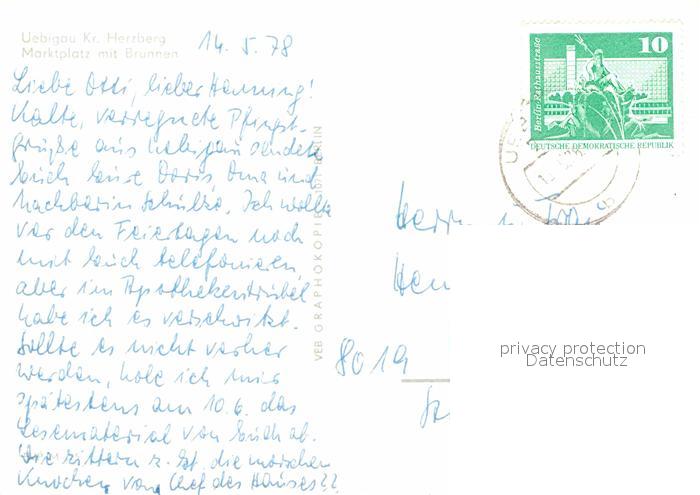 Uebigau Kr. Herzberg
Marktplatz mit Brunnen
14. 5. 78
Liebe Otti, lieber Henning!
Kalte, verregnete Pfingst-
grüße aus Uebigau sendet
Euch Eure Doris, Oma und
Nachbarin Schulze. Ich wollte
vor den Feiertagen noch
mit Euch telefonieren,
aber im Apothekentrubel
habe ich es verschwitzt.
Sollte es nicht vorher
werden, hole ich mir
spätestens am 10.6. das
Lesematerial von Euch ab.
Die zittern z. Zt. die morschen
Knochen vom Chef des Hauses??
VEB GRAPHOKOPIE BERLIN
10
Berlin-Rathausstraße
DEUTSCHE DEMOKRATISCHE REPUBLIK
Herrn
Hen
8019
privacy protection
Datenschutz